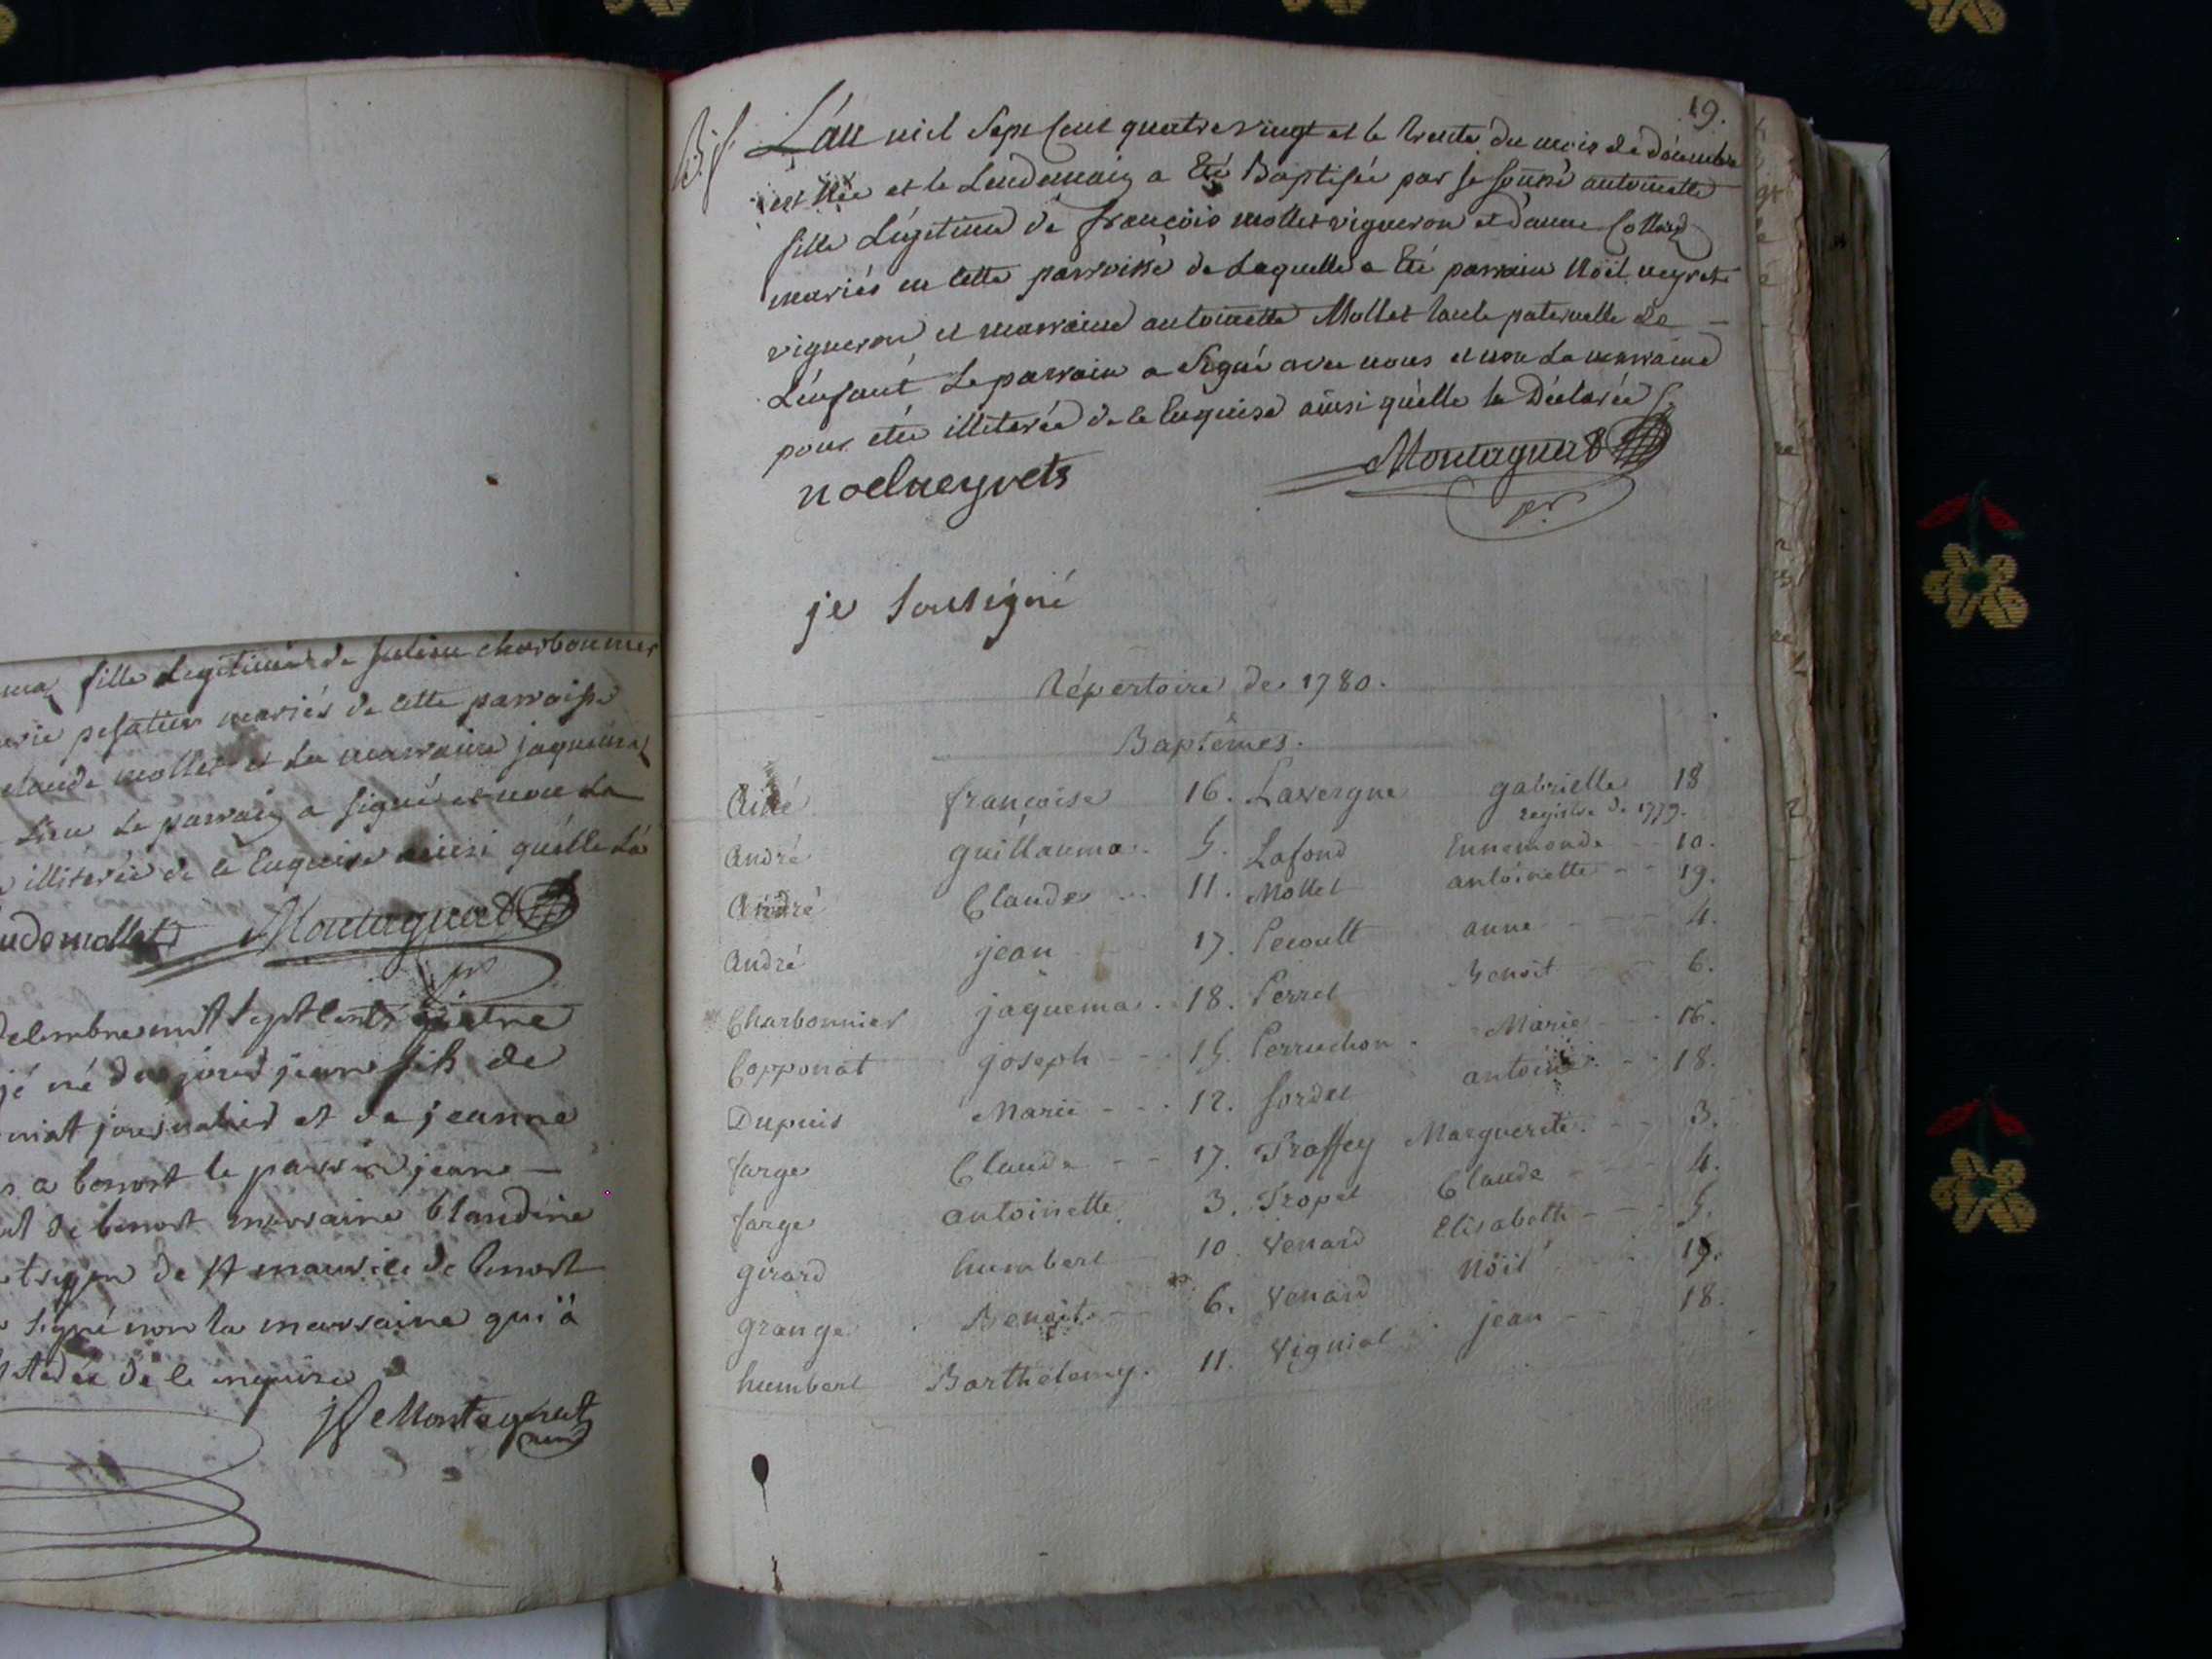 ma fille Legitime de Julien charbonnier
marie mariés de cette parroisse
claude mollet et La marraine jaquema
Lieu Le parrain a signé et non La
illiterée de ce Enquise ainsi quélle Là
Claudemollet Montagnat
pr
mil sept cents
né jean fils de
journalier et de jeanne
a benost le parrin jean
de benost marraine Claudine
de St maurice de benost
signé non la marraine qui a
de ce enquise
Montagnat
19.
Lan mil Sept Cent quatrevingt et le trente du mois de décembre
est Née et le Lendemain a Eté Baptisée par je soussé antoinette
fille Légitime de françois mollet vigneron et d'anne Collard
mariés en cette parroisse de Laquelle a Eté parrain Noël neyret
vigneron et marraine antoinette Mollet tante paternelle de
Lenfant Le parrain a Signé avec nous et non La marraine
pour etre illiterée de ce Enquise ainsi quélle la Déclarée
noelneyrets Montagnat
pr
je sousigné
Répertoire de 1780.
Baptêmes.
Aimé françoise 16. Lavergne gabrielle 18
registre de 1779.
André guillauma 5. Lafond Ennemonde 10.
André Claude 11. Mollet antoinette 19.
André jean 17. Pecoult anne 4.
Charbonnier jaquema 18. Perret Benoit 6.
Copponat joseph 15. Perruchon Marie 16.
Dupuis Marie 12. Sordet antoine 18.
farge Claude 17. Traffey Marguerite 3.
farge antoinette 3. Tropet Claude 4.
girard humbert 10. Venard Elisabeth 5.
grange Benoit 6. Venard Nöil 19.
humbert Barthelemy. 11. Vigniat jean 18.